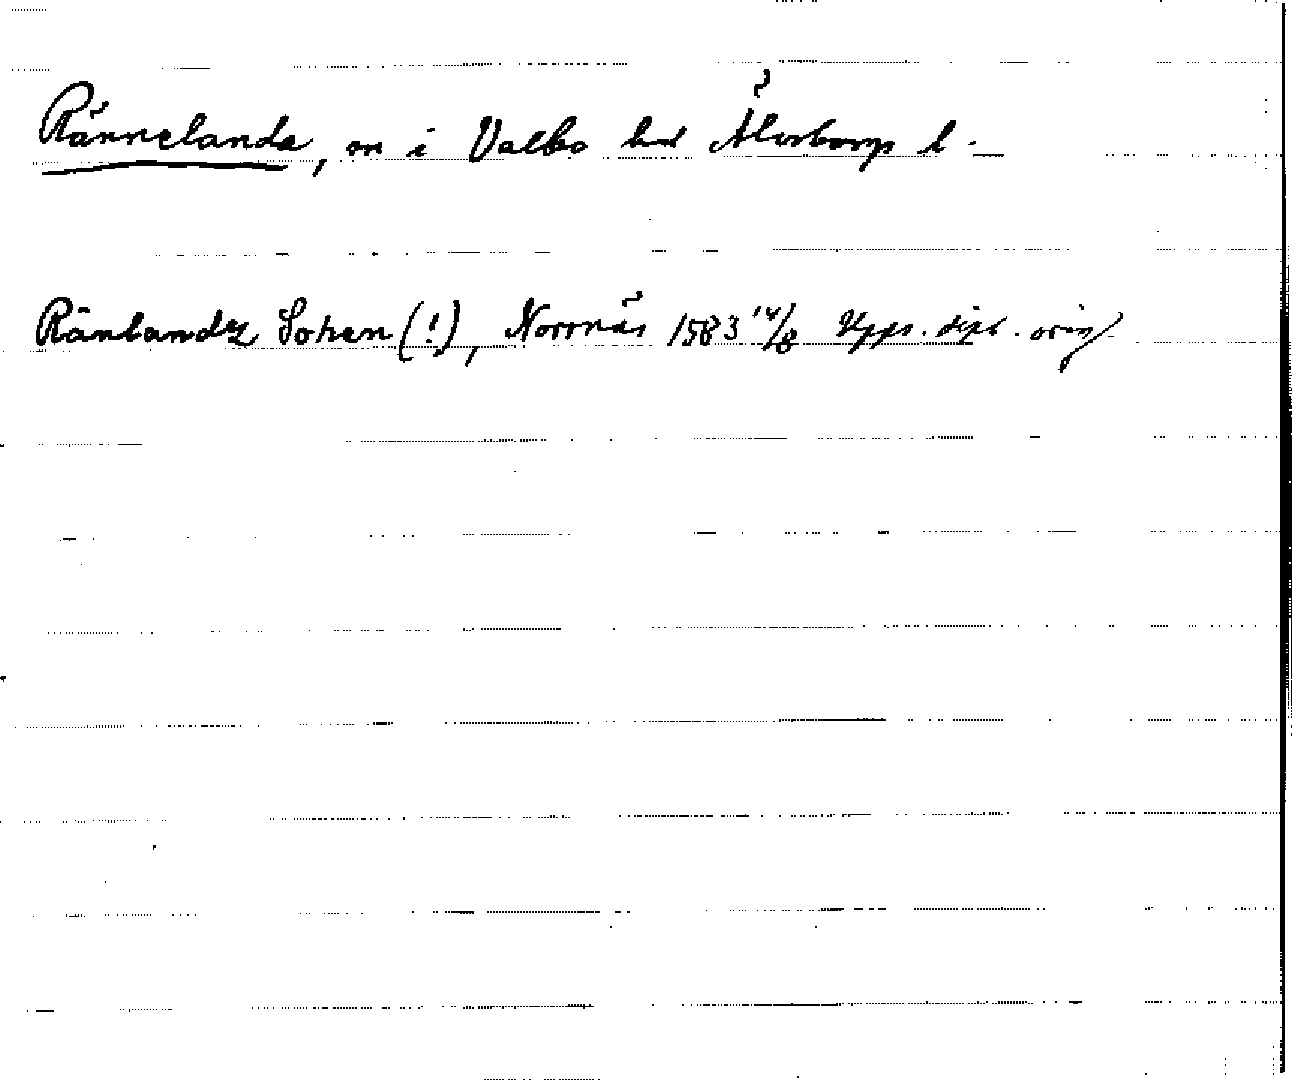 Rännelanda, sn i Valbo hd Älvsborgs l.
Ränlandz Soken (!), Norrnäs 1583 14/8 Upps. dipl. orig